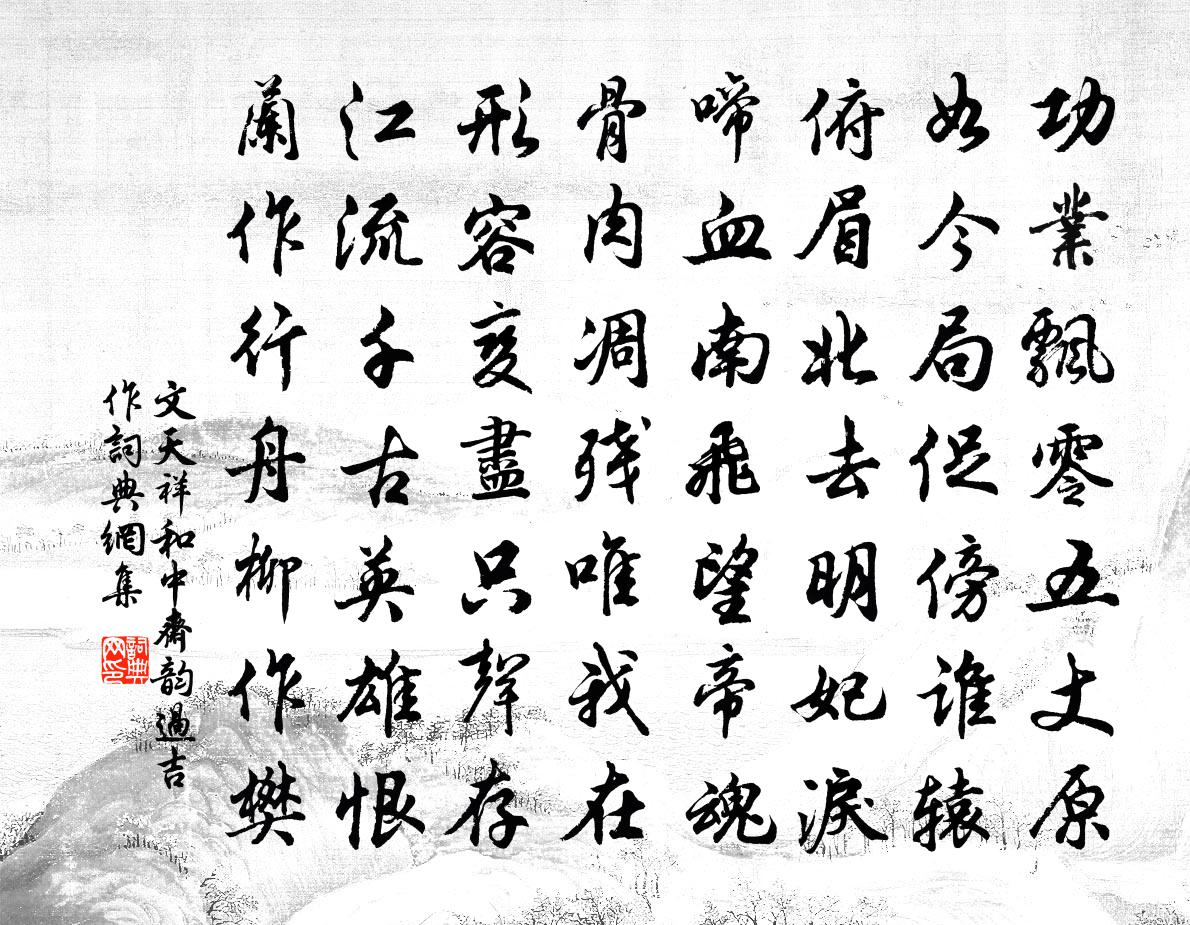 功業飄零五丈原
如今局促傍誰辕
俯眉北去明妃淚
啼血南飛望帝魂
骨肉凋残唯我在
形容变盡只聲存
江流千古英雄恨
蘭作行舟柳作樊
文天祥和中齋韵過吉
作詞典網集
詞典网印